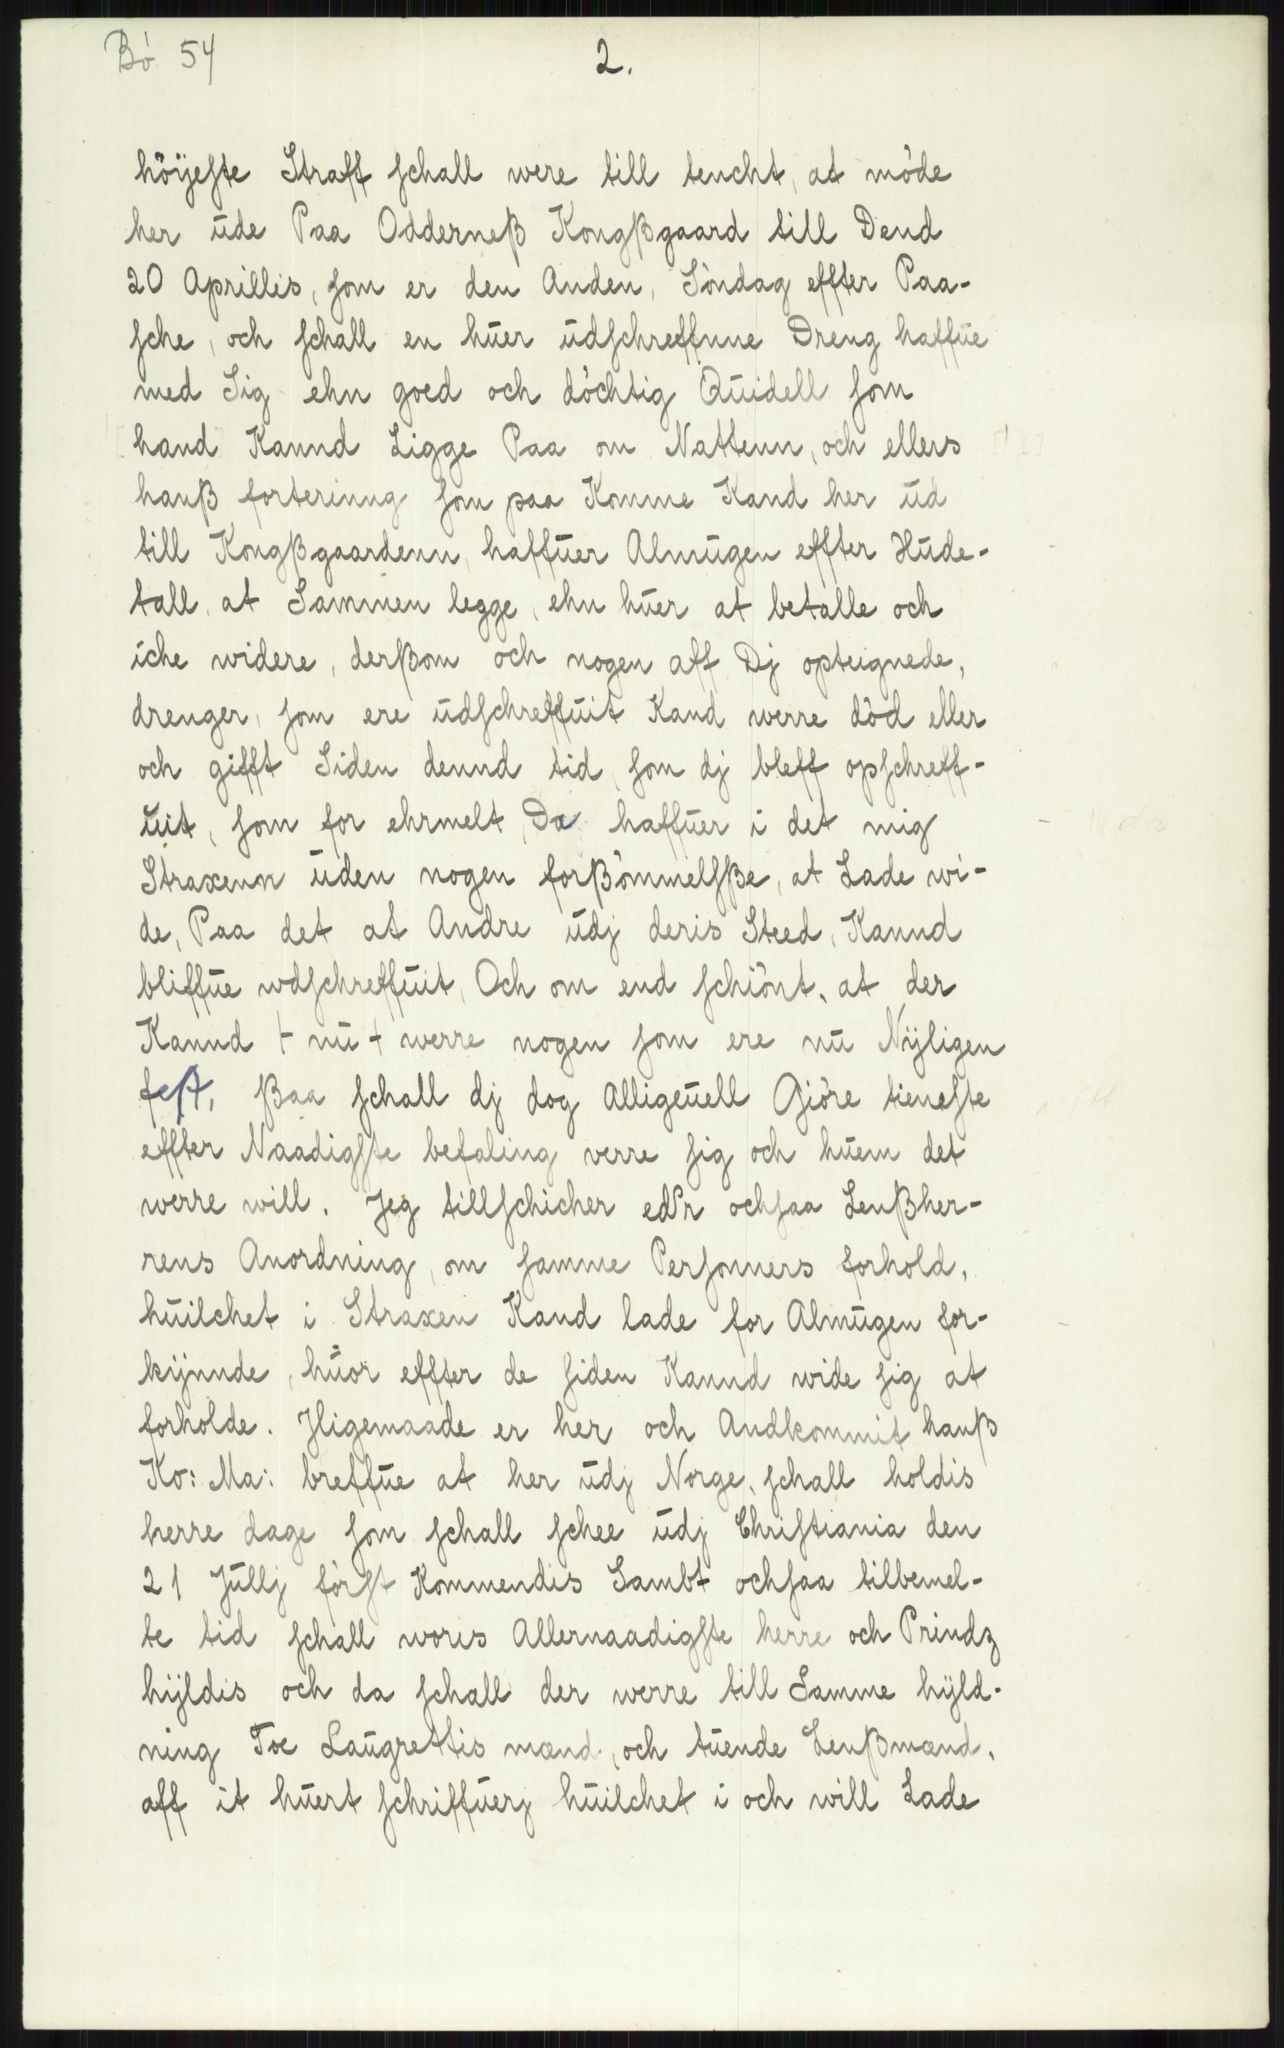 Bó 54
2.
höÿeste Straff schall were till tencht, at móde
her ude Paa Odderneß Kongßgaard till Dend
20 Aprillis, som er den Anden, Sóndag effter Paa-
sche, och schall en huer udschreffnne Dreng haffue
med Sig ehn goed och dóchtig Quidell som
hand Kannd Ligge Paa om Nattenn, och ellers
hanß forterinng som paa Komme Kand her ud
till Kongßgaardenn, haffuer Almugen effter Hude-
tall, at Sammen legge, ehn huer at betalle och
iche widere, derßom och nogen aff Dj opteignede,
drenger, som ere udschreffuit Kand werre dód eller
och gifft Siden dennd tid, som dj bleff opschreff-
uit, som for ehrmelt, Da haffuer i det mig
Straxenn uden nogen forßómmelsße, at Lade wi-
de, Paa det at Andre udj deris Steed, Kannd
bliffue wdschreffuit, Och om end schiónt, at der
Kannd + nu + werre nogen som ere nu Nÿligen
fest, ßaa schall dj dog Alligeuell Gióre tieneste
effter Naadigste befaling verre sig och huem det
werre will. Jeg tillschicher eder ochsaa Lenßher-
rens Anordning, om samme Personners forhold,
huilchet i Straxen Kand lade for Almugen for-
kÿnnde, huor effter de siden Kannd wide sig at
forholde. Iligemaade er her och Andkommit hanß
Ko: Ma: breffue at her udj Norge, schall holdis
herre dage som schall schee udj Christiania den
21 Jullj fórst Kommendis Sambt ochsaa tilbemel-
te tid schall woris Allernaadigste herre och Prindz
hÿldis och da schall der werre till Samme hÿld-
ning Toe Laugrettis mænd, och tuende Lenßmænd,
aff it huert schriffuerj huilchet i och will Lade